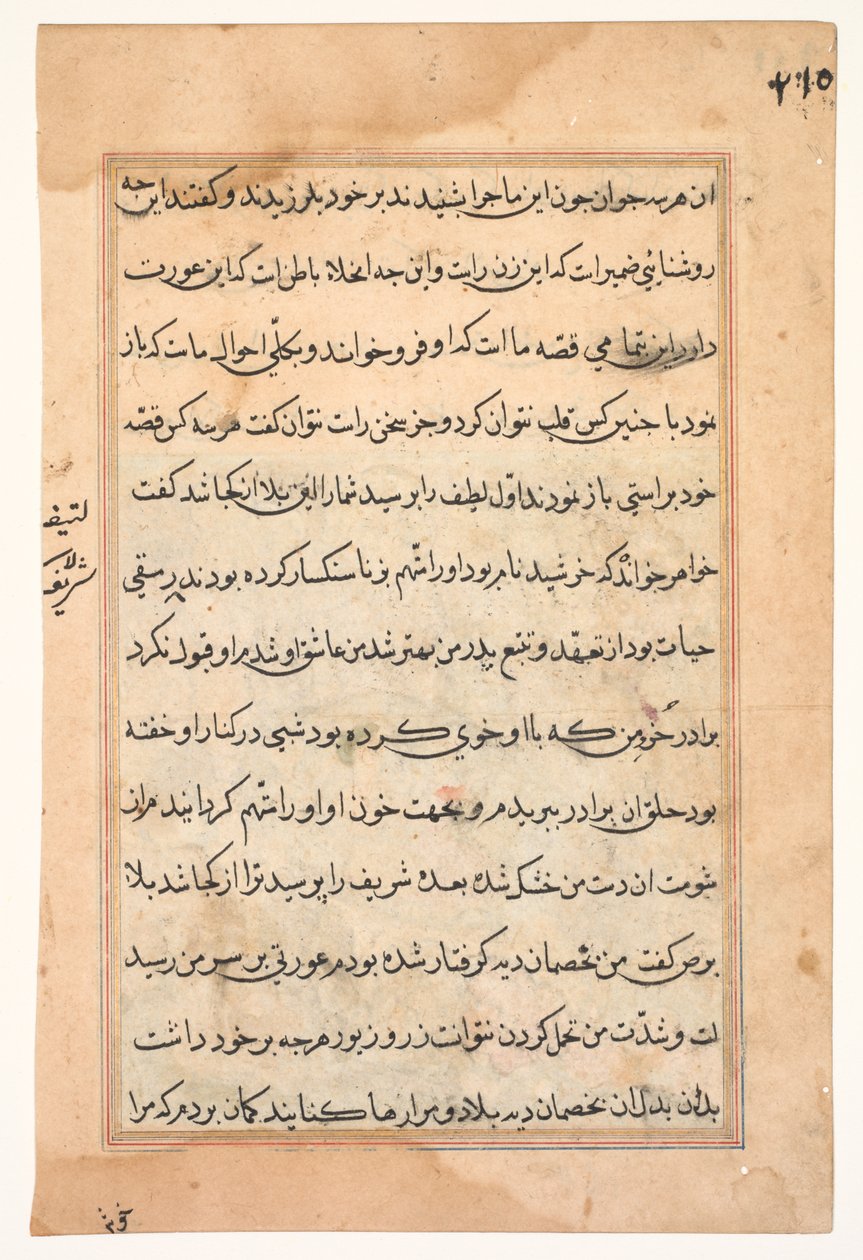 ۲۱۵
ان هر سه جوان جون این ماجرا بشنیدند بر خود بلرزیدند و کفتند این جه
روشنائیي ضمیر است که این زن راست و این جه انخلاء باطن است که این عورت
دارد این بتمامي قصّه ما است که او فرو خواند و بکلّي احوال ماست که باز
نمود با جنین کس قلب نتوان کرد و جز سخن راست نتوان کفت هر سه کس قصّه
خود براستي باز نمودند اوّل لطیف را برسید شما را این بلا از کجا شد کفت
خواهر خواندْ که خرشید نام بود او را متّهم بزنا سنکسار کرده بودند رمقي
حیات بود از تعهّد و تتبع بدر من بهتر شد من عاشق او شدم او قبول نکرد
برادر خُردِ من که با او خوي کرده بود شبي در کنار او خفته
بود حلق ان برادر ببریدم و بجهت خون او او را متّهم کردانیدم از
شومت ان دست من خشک شده بعده شریف را پرسید ترا از کجا شد بلاء
برص کفت من بخصمان دیه کرفتار شده بودم عورتي بر سر من رسید
لت و شدّت من تحمل کردن نتوانست زر و زیور هرجه بر خود داشت
بدان بدل ان بخصمان دیه بداد و مرا رها کنانید کمان بردم که مرا
لتیف
شرایف